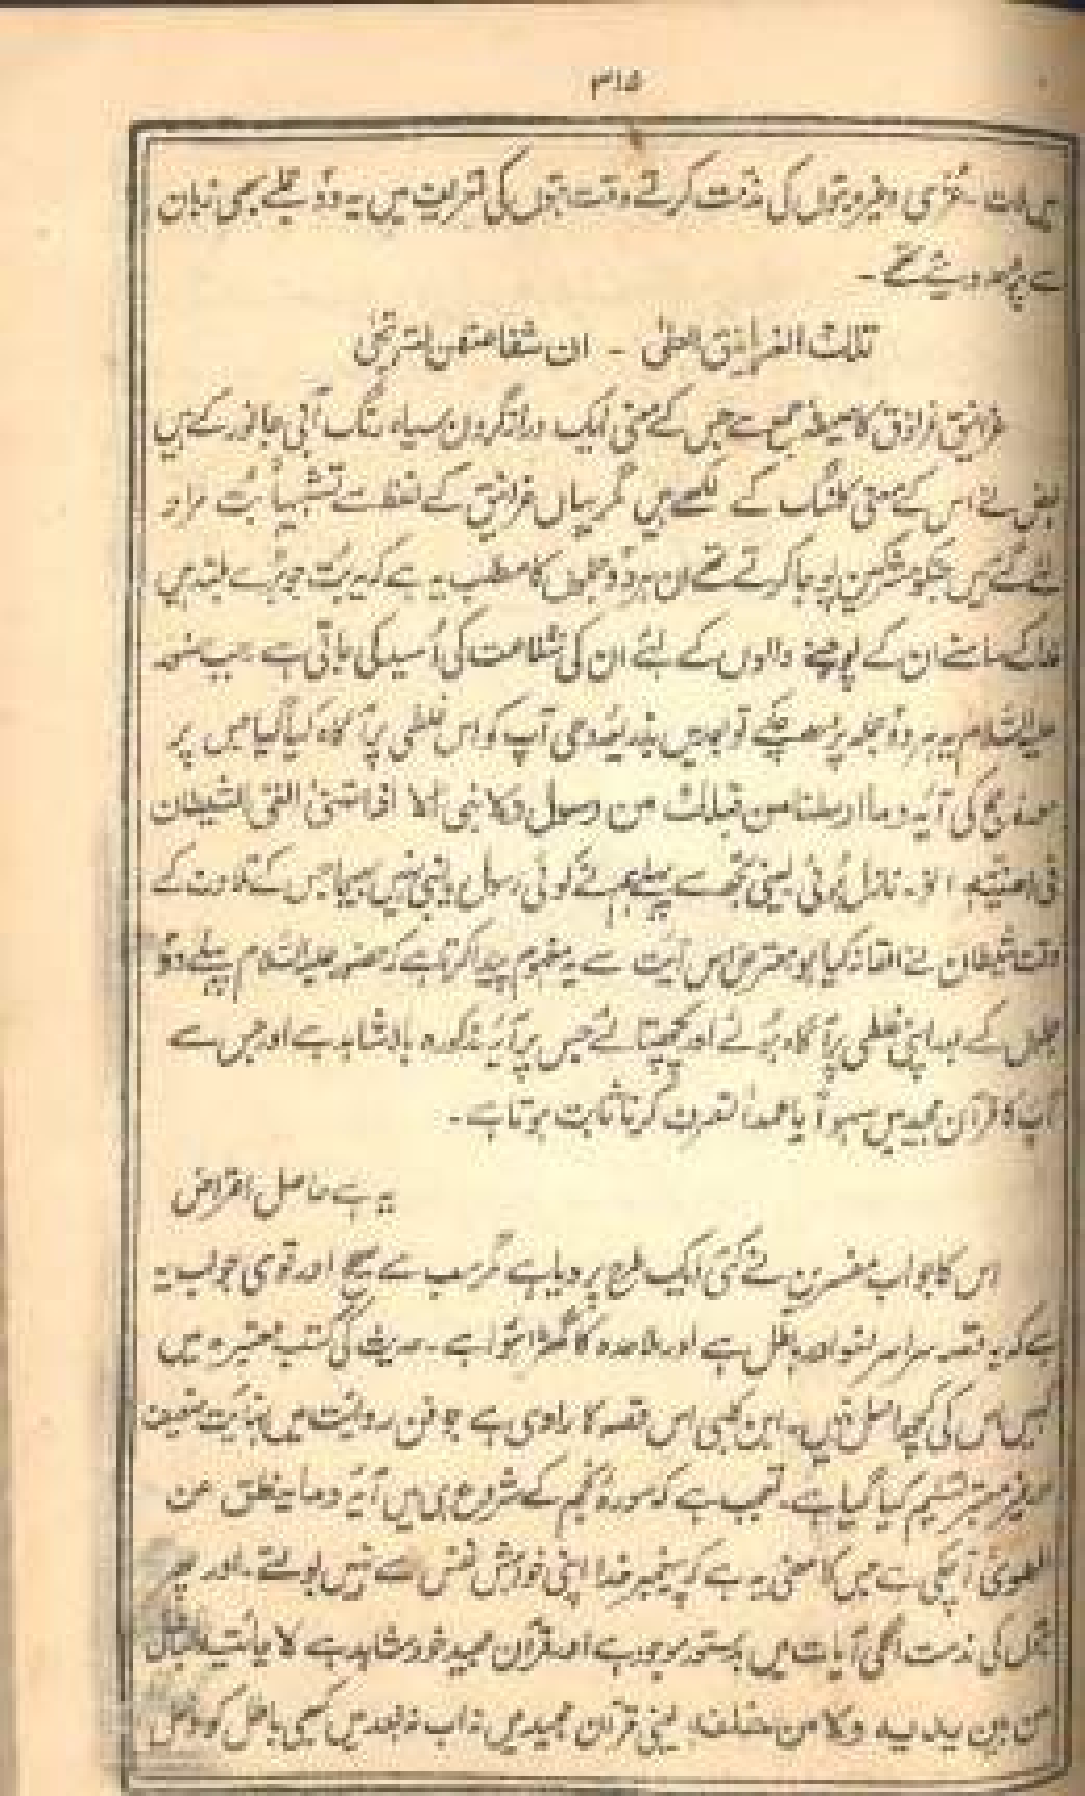 ۳۱۵
میں لات - عُزّی وغیرہ بتوں کی مذمت کرتے وقت بتوں کی تعریف میں یہ دو جملے بھی زبان
سے پڑھ دیئے تھے -
تلک الغرانیق العلیٰ - ان شفاعتھن لترتجیٰ
غرانیق غرنوق کا صیغہ جمع ہے جس کے معنی ایک دراز گردن سیاہ رنگ آبی جانور کے ہیں
بعض نے اس کے معنی کلنگ کے لکھے ہیں مگر یہاں غرانیق کے لفظ سے تشبہاً بُت مراد
لئے گئے ہیں جنکو مشرکین پوجا کرتے تھے ان ہر دو جملوں کا مطلب یہ ہے کہ یہ بُت جو بڑے بلند ہیں
خدا کے سامنے ان کے پوجنے والوں کے لئے ان کی شفاعت کی اُمید کی جاتی ہے جب
علیہ السّلام یہ ہر دو پڑھ چکے تو بعد میں بذریعہ وحی آپ کو اس غلطی پر آگاہ کیا گیا جس پر
سورہ حج کی آیہ وما ارسلنا من قبلک من رسول ولا نبی الا اذا تمنیٰ القی الشیطان
فی امنیتہ الخ - نازل ہوئی یعنی تجھ سے پہلے ہم نے کوئی رسول یا نبی نہیں بھیجا جس کے تلاوت کے
وقت شیطان نے القا نہ کیا ہو معترض اس آیت سے یہ مفہوم پیدا کرتا ہے کہ حضور علیہ السّلام پہلے دو
جملوں کے بعد اپنی غلطی پر آگاہ ہوئے اور پچھتائے جس پر آیۂ مذکورہ بالا شاہد ہے اور جس سے
آپ کا قرآن مجید میں سہواً یا عمداً تصرف کرنا ثابت ہوتا ہے -
یہ ہے حاصل اعتراض
اس کا جواب مفسرین نے کئی ایک طرح پر دیا ہے مگر سب سے صحیح اور قوی جواب یہ
ہے کہ یہ قصہ سراسر لغو اور باطل ہے اور ملاحدہ کا گھڑا ہوا ہے - حدیث کی کتب معتبرہ میں
کہیں اس کی کچھ اصل نہیں - ابن کلبی اس قصہ کا راوی ہے جو فن روائت میں نہایت ضعیف
اور غیر معتبر تسلیم کیا گیا ہے - تعجب ہے کہ سورہ نجم کے شروع ہی میں آیہ وما ینطق عن
الھویٰ آ چکی ہے جس کا معنی یہ ہے کہ پیغمبر خدا اپنی خواہش نفس سے نہیں بولتے - اور پھر
بتوں کی مذمت اگلی آیات میں بدستور موجود ہے اور قرآن مجید خود شاہد ہے لا یاتیہ الباطل
من بین یدیہ ولا من خلفہ یعنی قرآن مجید میں نہ اب نہ بعد میں کبھی باطل کو دخل